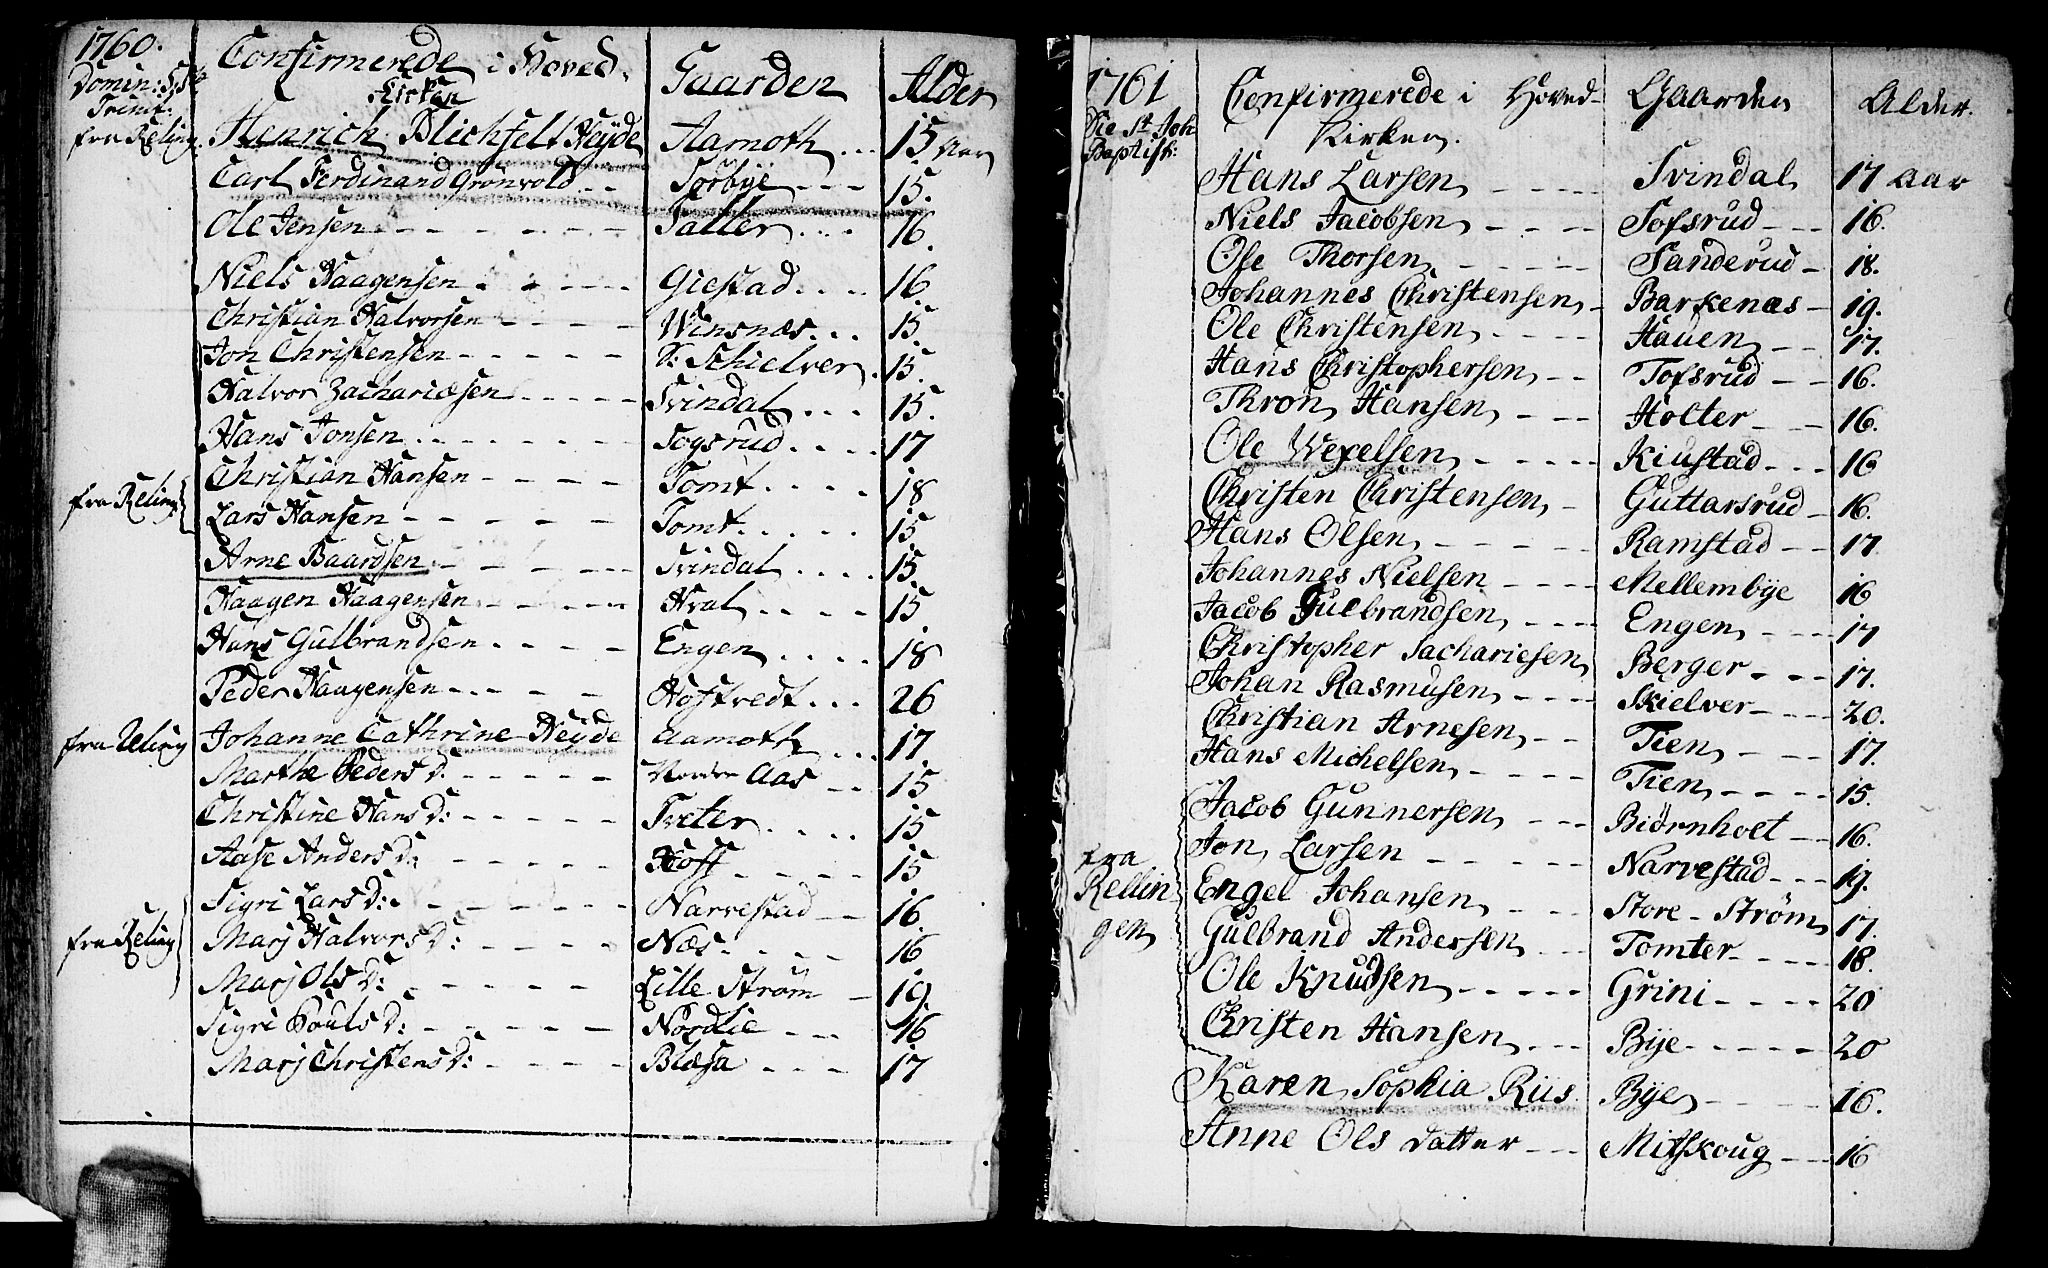 1760.
Domin: 5te
Trinit.
Confirmerede i Hoved-
Kirken
Gaarden
Alder
fra Reling. Henrich Blichfelt Heÿde Aamoth ... 15 Aar
Carl Ferdinand Grönvold - - Sørbÿe - - - 15.
Ole Jensen - - - - - - Satter ... 16.
Niels Haagensen - - - - Giestad .... 16
Christian Halvorsen - - - - Winsnæs ... 15.
Jon Christensen - - - - - S: Schielver. 15.
Halvor Zachariæsen - - - - - Svindal ... 15.
Hans Jonsen - - - - - - Sogsrud .... 17
Christian Hansen - - - - Tomt .... 18
fra Reling
Lars Hansen - - - - - Tomt ..... 15
Arne Baardsen - - - - - Svindal .... 15
Haagen Haagensen - - - - Hval .... 15
Hans Gulbrandsen - - - - Engen .... 18
Peder Haagensen - - - - Hoftvedt ... 26
fra Reling Johanne Cathrine Heÿde Aamoth ... 17
Marthe Peders D: - - - - - Nordre Aas - - 15
Christine Hans D: - - - - - Tveter .... 15
Aase Anders D: - - - - - Hoff - - - - 15
Sigri Lars D: - - - - - Narvestad - - 16.
fra Reling
Marj Halvors D: - - - - Næs ..... 16
Marj Ols D: - - - - - Lille Strøm - 19.
Sigri Pouls D: - - - - - Nordlie - - - 16
Marj Christens D: - - - - Blæsa - - - 17
1761
Die St Joh
Baptist:
Confirmerede i Hoved-
Kirken.
Gaarden
Alder.
Hans Larsen - - - - Svindal 17 aar
Niels Jacobsen - - - - Sofsrud - - - 16.
Ole Thorsen - - - - Sanderud - 18.
Johannes Christensen - Barkenæs - 19.
Ole Christensen - - - - Hauen - - 17.
Hans Christophersen - - Tofsrud - - 16.
Thron Hansen - - - Holter - - - 16.
Ole Wexelsen - - - - Kiustad - - - 16
Christen Christensen - Guttarsrud - 16.
Hans Olsen - - - - - Ramstad - - 17.
Johannes Nielsen - - - - Mellembÿe 16
Jacob Gulbrandsen - - - - Engen - - - 17
Christopher Sachariesen Berger - - - 17.
Johan Rasmusen - - - - Skielver - - - 20.
Christian Arnesen - - Tien - - - 17.
Hans Michelsen - - - - Tien - - - - 15.
Jacob Gunnersen - - - Biørnholt - - 16.
Jon Larsen - - - - Narvestad - - - 19.
fra
Rellin
gen
Engel Johansen - - - Store-Strøm 17.
Gulbrand Andersen - - Tomter - - - - 18.
Ole Knudsen - - - - Grini - - - - 20
Christen Hansen - - - Bÿe - - - - - 20
Karen Sophia Riis Bÿe - - - - 16.
Anne Ols Datter - - - Mitskoug - - - 16